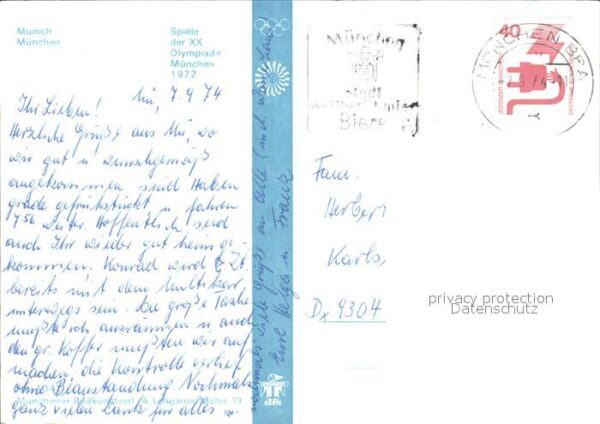 Munich
München
Spiele
der XX
Olympiade
München
1972
Mü, 7.9.74
Ihr Lieben!
Herzliche Grüße aus Mü, wo
wir gut u wunschgemäß
angekommen sind. Haben
grade gefrühstückt u fahren
7⁵⁶ weiter. Hoffentlich seid
auch Ihr wieder gut heimge-
kommen. Konrad wird z. Zt.
bereits mit dem
unterwegs sein. Die große Tasche
mußte ich ausräumen u auch
den gr. Koffer mußten wir auf
machen, die Kontrolle verlief
ohne Beanstandung. Nochmals
ganz vielen Dank für alles u
nochmals viele Grüße an alle
Eure Helga u Franz
München
Stadt
Biere
MÜNCHEN BPA
7.9.74
40
JEDERZEIT SICHERHEIT
DEUTSCHE
Fam.
Herbert
Karls
Dx 9304
privacy protection
Datenschutz
Münchener Bildkunstverl. A. Lengauer, Mchn 19